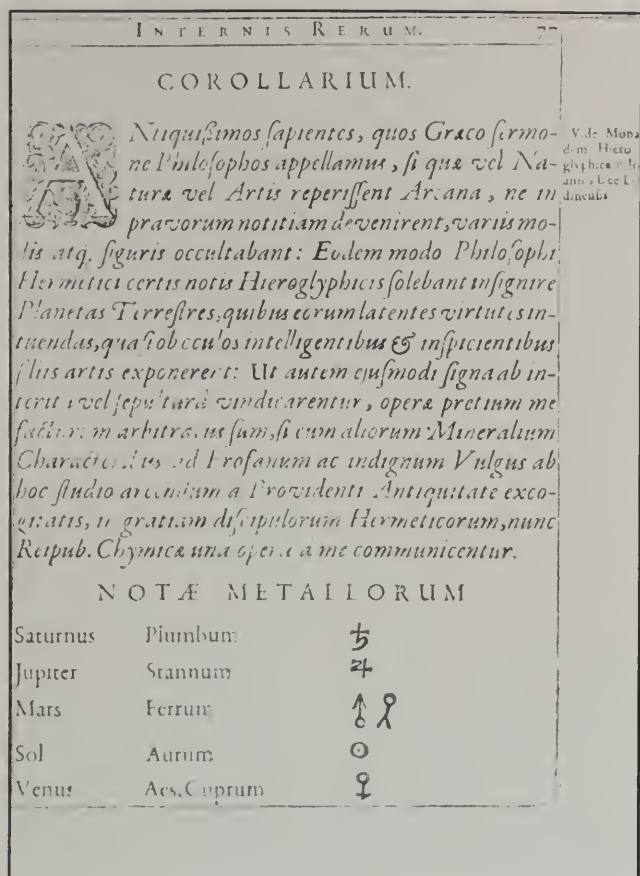 INTERNIS RERUM. 77
COROLLARIUM.
ANtiquißimos ſapientes, quos Græco ſermo-
ne Philoſophos appellamus, ſi quæ vel Na-
turæ vel Artis reperiſſent Arcana, ne in
pravorum notitiam devenirent, variis mo-
dis atq. figuris occultabant: Eodem modo Philoſophi
Hermetici certis notis Hieroglyphicis ſolebant inſignire
Planetas Terreſtres, quibus eorum latentes virtutes in-
tuendas, quaſi ob oculos intelligentibus & inſpicientibus
filiis artis exponerent: Ut autem ejuſmodi ſigna ab in-
teritu vel ſepulturâ vindicarentur, operæ pretium me
facturum arbitratus ſum, ſi cum aliorum Mineralium
Characteribus ad Profanum ac indignum Vulgus ab
hoc ſtudio arcendum a Providenti Antiquitate exco-
gitatis, in gratiam diſcipulorum Hermeticorum, nunc
Reipub. Chymicæ una opera à me communicentur.
Vide Mona
dem Hiero
glyphicam Io
annis Dee Lo
dinenſis
NOTÆ METALLORUM
Saturnus Plumbum ♄
Jupiter Stannum ♃
Mars Ferrum
Sol Aurum ☉
Venus Aes. Cuprum ♀